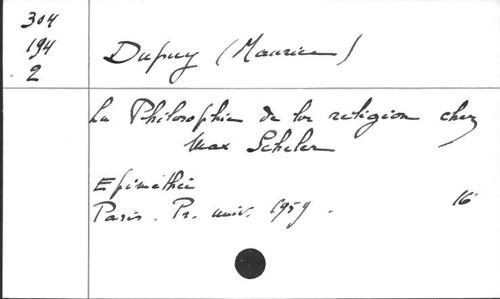 304
194
2
Dupuy (Maurice)
La Philosophie de la religion chez
Max Scheler
Epiméthée
Paris. Pr. univ. 1959.
16